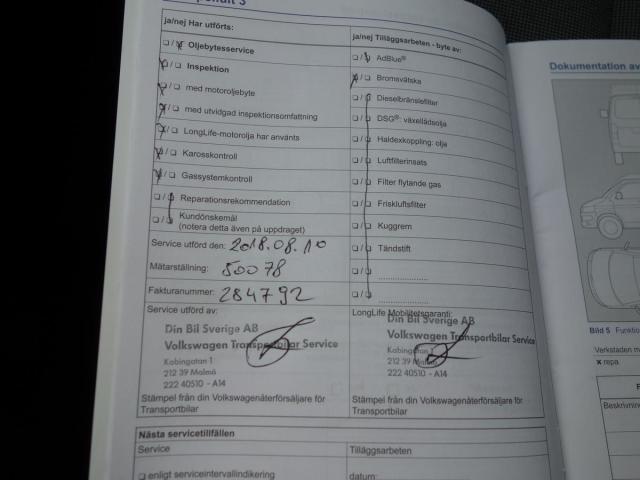 ja/nej Har utförts:
Oljebytesservice
Inspektion
med motoroljebyte
med utvidgad inspektionsomfattning
LongLife-motorolja har använts
Karosskontroll
Gassystemkontroll
Reparationsrekommendation
Kundönskemål
(notera detta även på uppdraget)
Service utförd den: 2018.08.10
Mätarställning: 50078
Fakturanummer: 284792
Service utförd av:
Din Bil Sverige AB
Volkswagen Transportbilar Service
Kabingatan 1
212 39 Malmö
222 40510 - A14
Stämpel från din Volkswagenåterförsäljare för
Transportbilar
ja/nej Tilläggsarbeten - byte av:
AdBlue®
Bromsvätska
Dieselbränslefilter
DSG®: växellådsolja
Haldexkoppling: olja
Luftfilterinsats
Filter flytande gas
Friskluftsfilter
Kuggrem
Tändstift
LongLife Mobilitetsgaranti:
Din Bil Sverige AB
Volkswagen Transportbilar Service
Kabingatan 1
212 39 Malmö
222 40510 - A14
Stämpel från din Volkswagenåterförsäljare för
Transportbilar
Nästa servicetillfällen
Service
Tilläggsarbeten
enligt serviceintervallindikering
datum:
Dokumentation av
Bild 5 Funktio
Verkstaden m
x repa
F
Beskrivnin